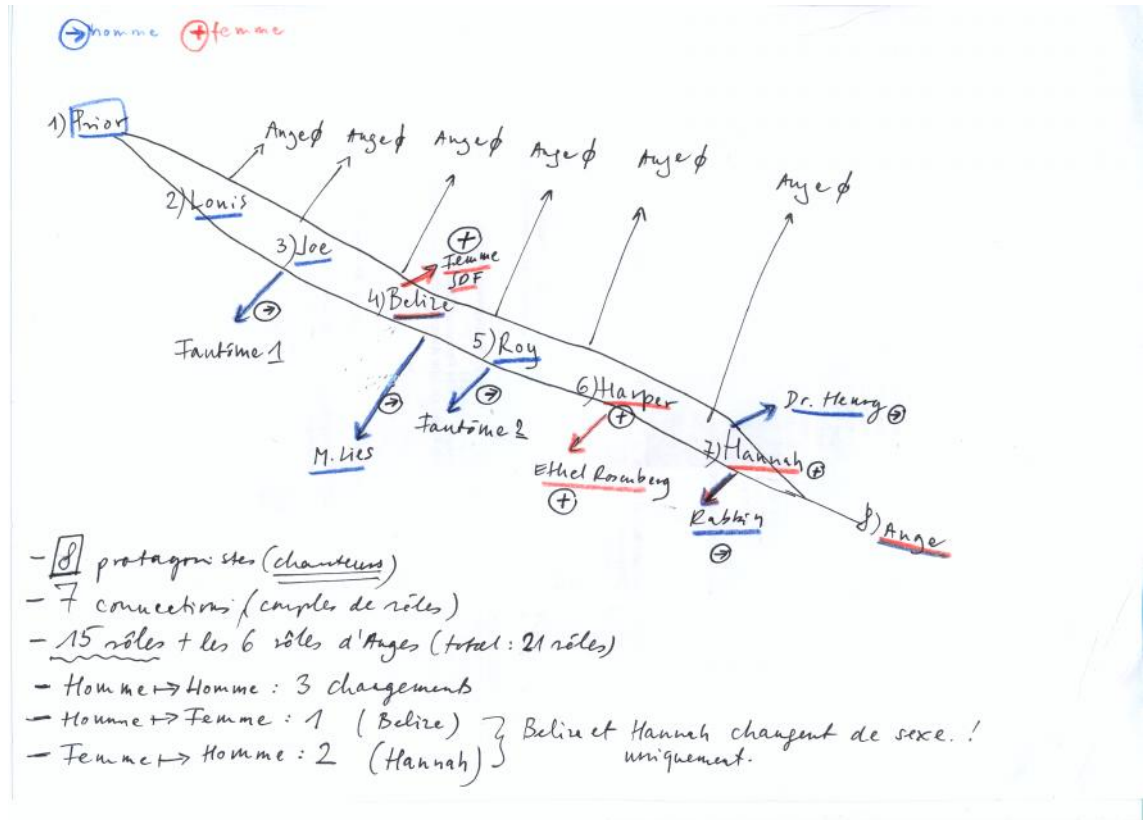 homme femme
1) Prior
Ange ϕ Ange ϕ Ange ϕ Ange ϕ Ange ϕ Ange ϕ
2) Louis
3) Joe
Femme
SDF
4) Belize
Fantôme 1
5) Roy
6) Harper
Dr. Henry
Fantôme 2
M. Lies
7) Hannah
Ethel Rosenberg
Rabbin
8) Ange
- 8 protagonistes (chanteurs)
- 7 connections (couples de rôles)
- 15 rôles + les 6 rôles d'Anges (total : 21 rôles)
- Homme ↦ Homme : 3 changements
- Homme ↦ Femme : 1 (Belize)
- Femme ↦ Homme : 2 (Hannah)
} Belize et Hannah changent de sexe. !
uniquement.